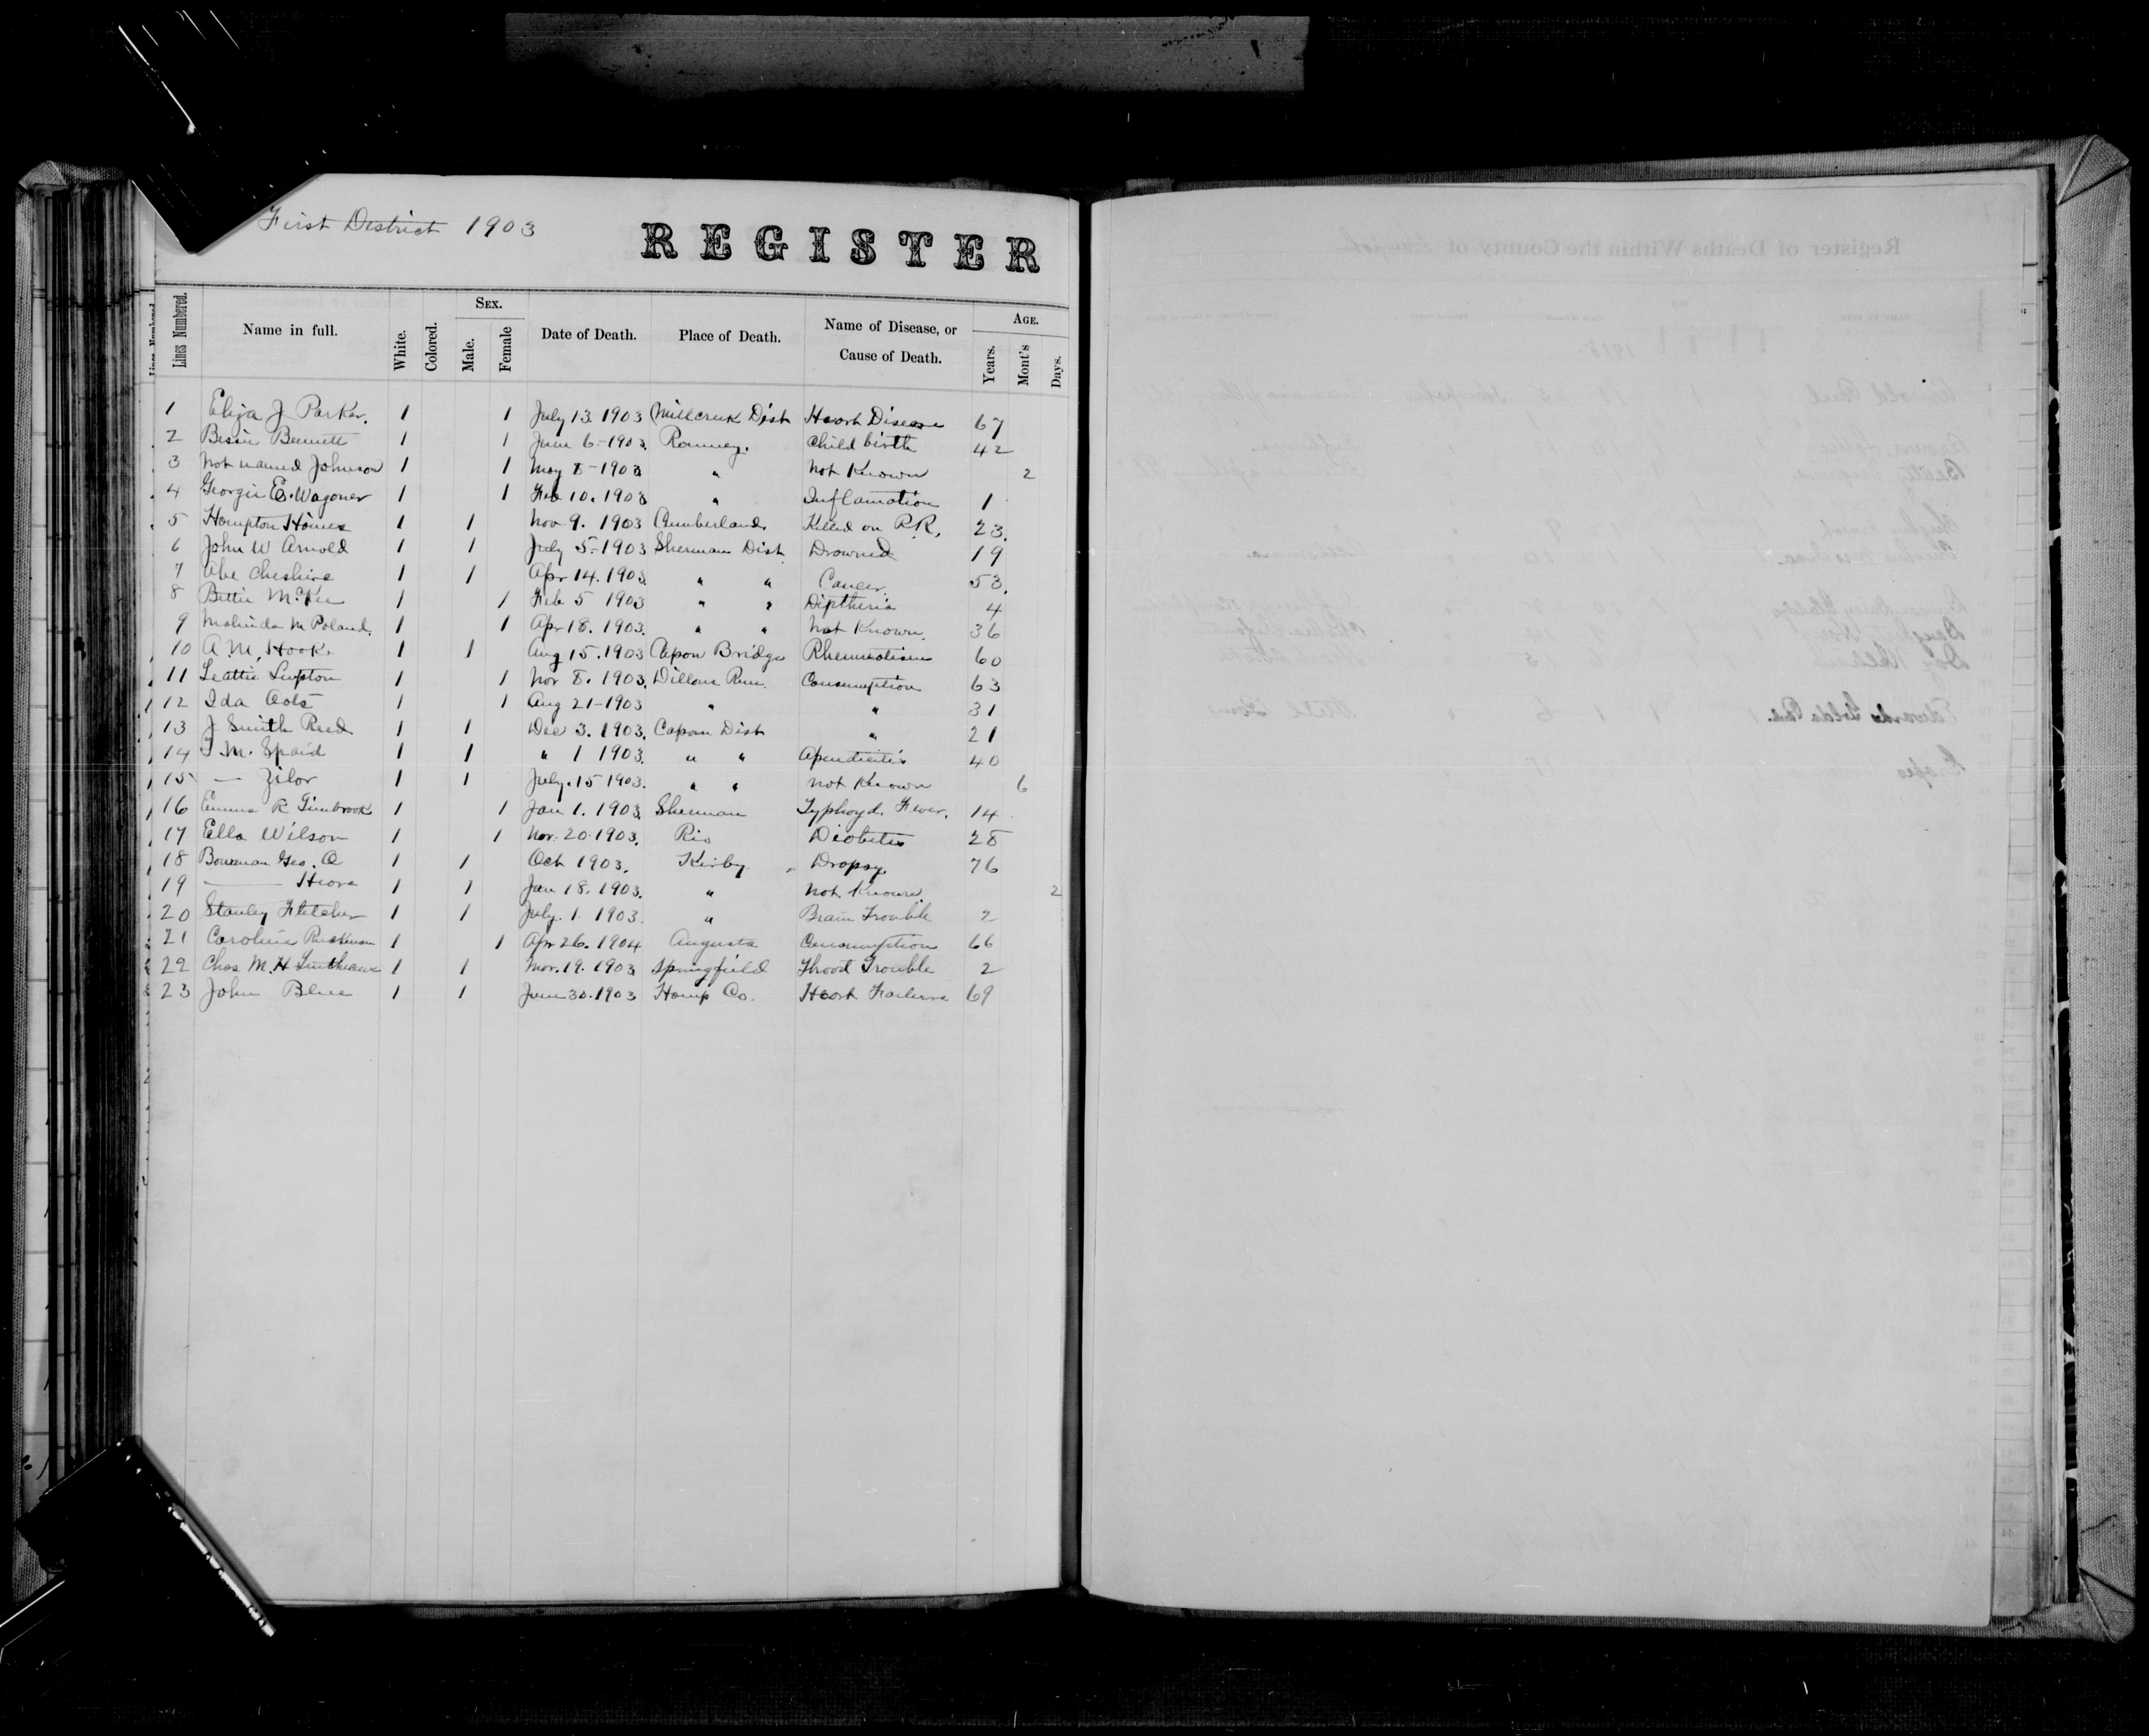 First District 1903
REGISTER
Lines Numbered. Name in full. White. Colored. SEX. Male. Female Date of Death. Place of Death. Name of Disease, or Cause of Death. AGE. Years. Mont's Days.
1 Eliza J Parker. 1 1 July 13. 1903 Millcreek Dist Heart Disease 67
2 Bessie Bennett 1 1 June 6-1903. Romney. Child birth 42
3 Not named Johnson 1 1 May 8-1903 " Not Known 2
4 Georgie E. Wagoner 1 1 Feb 10. 1903 " Inflamation 1
5 Hampton Himes 1 1 Nov 9. 1903 Cumberland Killed on R.R. 23.
6 John W Arnold 1 1 July 5-1903 Sherman Dist Drowned 19
7 Abe Cheshire 1 1 Apr 14. 1903. " " Cancer. 53.
8 Bettie McKee 1 1 Feb 5 1903 " " Diptheria 4
9 Malinda M Poland. 1 1 Apr 18. 1903. " " Not Known. 36
10 A. M. Hook 1 1 Aug 15. 1903 Capon Bridge Rheumatism 60
11 Leattie Lupton 1 1 Nov 8. 1903. Dillons Run. Consumption 63
12 Ida Oats 1 1 Aug 21-1903 " " 31
13 J Smith Reed 1 1 Dec 3. 1903. Capon Dist " 21
14 M. Spaid 1 1 " 1 1903. " " Apendicitis 40
15 — Zilor 1 1 July. 15 1903. " " Not Known 6
16 Emma R Timbrook 1 1 Jan 1. 1903. Sherman Typhoyd. Fever. 14
17 Ella Wilson 1 1 Nov. 20. 1903. Rio Diabetis 28
18 Bowman Geo. A 1 1 Oct 1903. Kirby Dropsy. 76
19 — 1 1 Jan 18. 1903. " Not Known. 2
20 Stanley Fletcher 1 1 July. 1. 1903. " Brain Trouble 2
21 Caroline Ruckman 1 1 Apr 26. 1904 Augusta Consumption 66
22 Chas M. H 1 1 Nov. 19. 1903 Springfield Throat Trouble 2
23 John Blue 1 1 June 30. 1903 Hamp Co. Heart Failure 69